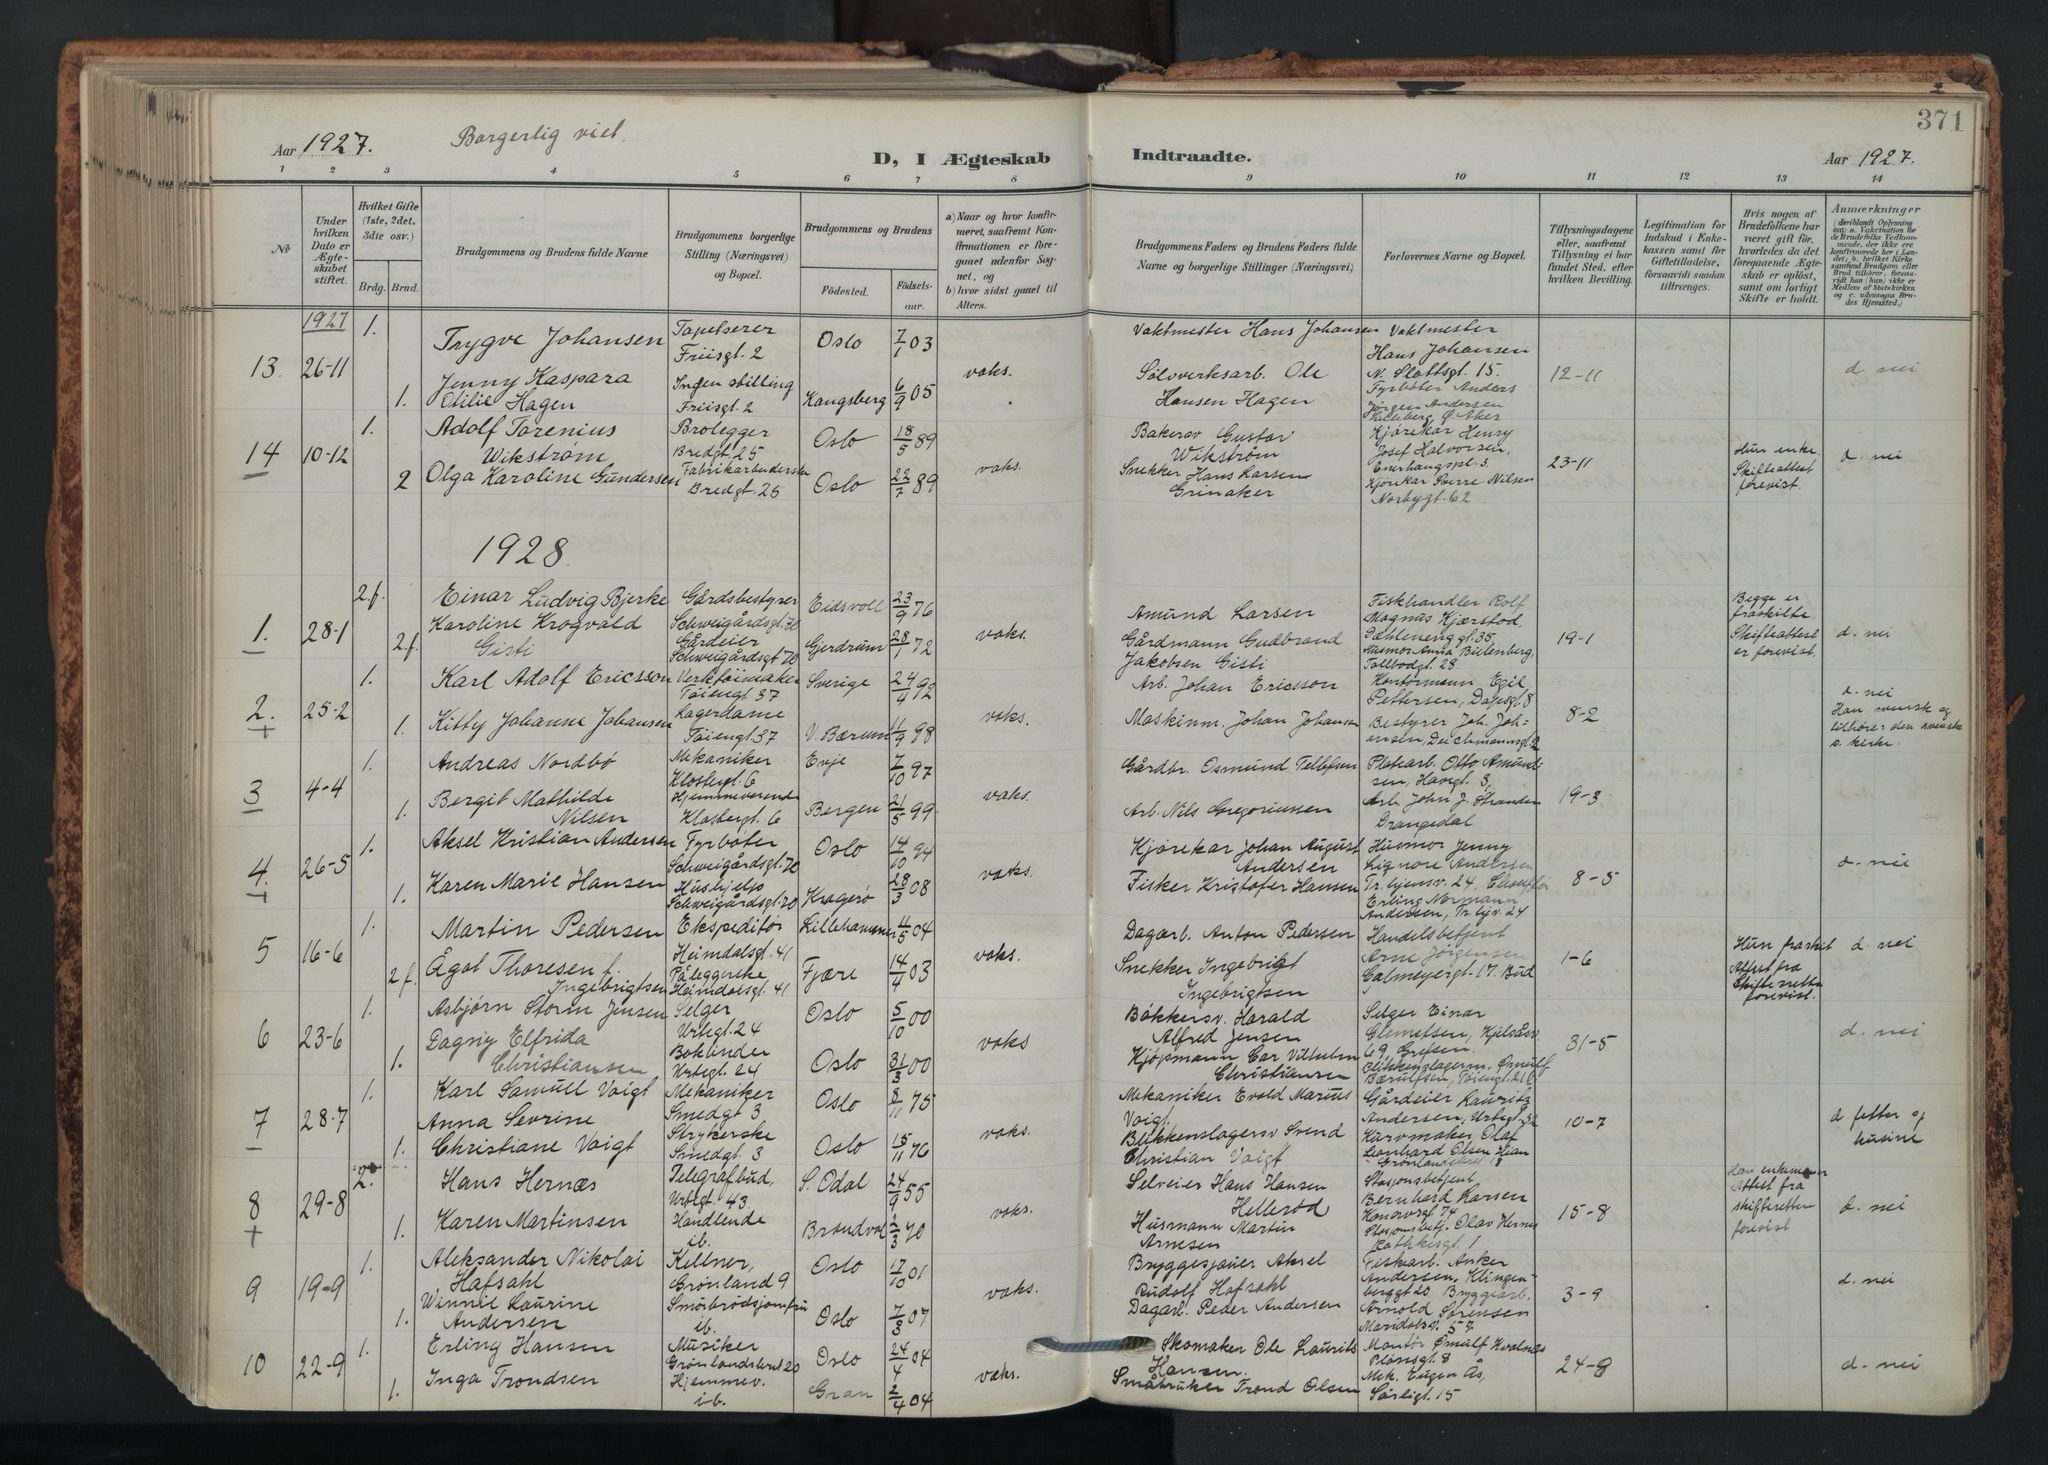 371
Aar 1927. Borgerlig viet.
D, I Ægteskab Indtraadte.
Aar 1927.
1 2 3 4 5 6 7 8 9 10 11 12 13 14
No
Under hvilken Dato er Ægteskabet stiftet.
Hvilket Gifte (1ste, 2det, 3die osv.)
Brdg. Brud.
Brudgommens og Brudens fulde Navne
Brudgommens borgerlige Stilling (Næringsvei) og Bopæl.
Brudgommens og Brudens
Fødested. Fødselsaar.
a) Naar og hvor konfirmeret, saafremt Konfirmationen er foregaaet udenfor Sognet, og
b) hvor sidst gaaet til Alters.
Brudgommens Faders og Brudens Faders fulde Navne og borgerlige Stillinger (Næringsvei)
Forlovernes Navne og Bopæl.
Tillysningsdagene eller, saafremt Tillysning ei har fundet Sted, efter hvilken Bevilling.
Legitimation for Indskud i Enkekassen samt for Giftetilladelse, forsaavidt saadan tiltrænges.
Hvis nogen af Brudefolkene har været gift før, hvorledes da det foregaaende Ægteskab er opløst, samt om lovligt Skifte er holdt.
Anmærkninger
1927
13. 26-11
1. Trygve Johansen Tapetserer Friisgt. 2 Oslo 7/1 03
1. Jenny Kaspara Otilie Hagen Ingen stilling Friisgt. 2 Kongsberg 6/9 05
vaks.
Vaktmester Hans Johansen
Sølvverksarb. Ole Hansen Hagen
Vaktmester Hans Johansen N. Slottsgt. 15.
Fyrbøter Anders Jørgen Andersen Ø. Aker
12-11 d. nei
14 10-12
1. Adolf Torenius Wikstrøm Brolegger Bredgt. 25 Oslo 18/5 89
2 Olga Karoline Gundersen Fabrikarbeiderske Bredgt. 25 Oslo 22/7 89
vaks.
Bakersv Gustav Wikstrøm
Snekker Hans Larsen Grinaker
Kjørekar Henry Josef Halvorsen, Enerhaugspl. 3.
Kjørekar Sverre Nilsen Norbygt. 62
23-11
Hun enke. Skifteattest forevist.
d. nei
1928
1. 28-1
2.f. Einar Ludvig Bjerke Gårdsbestyrer Schweigårdsgt. 70 Eidsvoll 23/9 76
2.f. Karoline Krogvald Gisti Gårdeier Schweigårdsgt 70 Gjerdrum 28/1 72
vaks.
Amund Larsen
Gårdmann Gudbrand Jakobsen Gisti
Fiskhandler Rolf Magnus Kjærstod Dæhlenenggt. 35,
Husmor Anna Bielenberg Tollbodgt. 28
19-1
Begge er fraskilte Skifteattest er forevist.
d. nei
2. 25-2
1. Karl Adolf Ericsson Verktøimaker Tøiengt. 37 Sverige 24/4 92
1. Kitty Johanne Johansen Lagerdame Tøiengt. 37 V. Bærum 11/9 98
vaks.
Arb. Johan Ericsson
Maskinm. Johan Johansen
Kontormann Egil Pettersen, Dapsgt. 8
Bestyrer Joh. Johansen, Deichmannsgt. 2
8-2
d. nei Han svensk og tilhører den svenske s. kirke.
3 4-4
1. Andreas Nordbø Mekaniker Klostergt. 6 Evje 7/10 97
1. Bergit Mathilde Nilsen Hjemmeværende Klostergt. 6 Bergen 21/5 99
vaks.
Gårdbr. Osmund Tellefsen
Arb. Nils Gregoriussen
Platearb. Otto Amundsen, Havegt. 3,
Arb. John J. Stranden Drangedal
19-3
4. 26-5
1. Aksel Kristian Andersen Fyrbøter Schweigårdsgt. 70 Oslo 14/10 94
1. Karen Marie Hansen Hushjelp Schweigårdsgt. 70 Kragerø 28/3 08
vaks.
Kjørekar Johan August Andersen
Fisker Kristofer Hansen
Husmor Jenny Signore Andersen Tr.hjemsv. 24, Chauffør Erling Normann Andersen, Tr.hjv. 24
8-5
d. nei
5 16-6
1. Martin Pedersen Ekspeditør Heimdalsgt. 41 Lillehammer 4/5 04
2 f. Ågot Thoresen f. Ingebrigtsen Påleggerske Heimdalsgt. 41 Fjære 14/4 03
vaks.
Dagarb. Anton Pedersen
Snekker Ingebrigt Ingebrigtsen
Handelsbetjent Arne Jørgensen Calmeyergt. 17. Bud
1-6
Hun fraskilt Attest fra Skifteretten forevist.
d. nei
6 23-6
1. Asbjørn Storm Jensen Selger Urtegt. 24 Oslo 5/10 00
1. Dagny Elfrida Christiansen Bokbinder Urtegt. 24 Oslo 31/3 00
vaks
Bøkkersv. Harald Alfred Jensen
Kjøpmann Car Vilhelm Christiansen
Selger Einar Clemetsen, Kjelsåsv. 69, Grefsen.
Blikkenslagerm. Ørnulf Bærulfsen, Tøiengt. 21b
31-5
d. nei
7 28-7
1. Karl Samuel Voigt Mekaniker Smedgt 3 Oslo 8/11 75
1. Anna Sevrine Christiane Voigt Strykerske Smedgt. 3 Oslo 15/11 76
vaks.
Mekaniker Evald Marius Voigt.
Blikkenslagersv Svend Christian Voigt
Gårdeier Lauritz Andersen, Urtegt. 32
Kurvmaker Olaf Leonhard Olsen Hjem Grønlandsleret 18
10-7
d. fetter og kusine
8 29-8
2. Hans Hernæs Telegrafbud, Urtegt. 43 S. Odal 24/9 55
1. Karen Martinsen Handlende ib. Brandval 2/3 70
vaks.
Selveier Hans Hansen Hellerød
Husmann Martin Arnesen
Stasjonsbetjent Bernhard Larsen 74
Stasjonsbetj. Olav Hernes Rathkesgt. 1
15-8
Han enkemann Attest fra skifteretten forevist
d. nei
9 19-9
1. Aleksander Nikolai Hafsahl Kellner, Grønland 9 Oslo 17/10 01
1. Winnie Laurine Andersen Smørbrødsjomfru ib. Oslo 7/3 07
vaks.
Bryggesjauer Aksel Rudolf Hafsahl
Dagarb. Peder Andersen
Fiskarb. Anker Andersen, Klingenberggt 20 Bryggiarb. Arnold Sørensen Maridalsg. 57.
3-9
d. nei
10 22-9
1. Erling Hansen Musiker Grønlandsleret 20 Oslo 24/4 04
1. Inga Trondsen Hjemmev. ib. Gran 2/4 04
vaks.
Skomaker Ole Laurits Hansen.
Småbruker Trond Olsen
Montør Ørnulf Kvalnes Plønsgt. 8
Mek. Eugen Ås, Sørligt. 15
24-8
d. nei